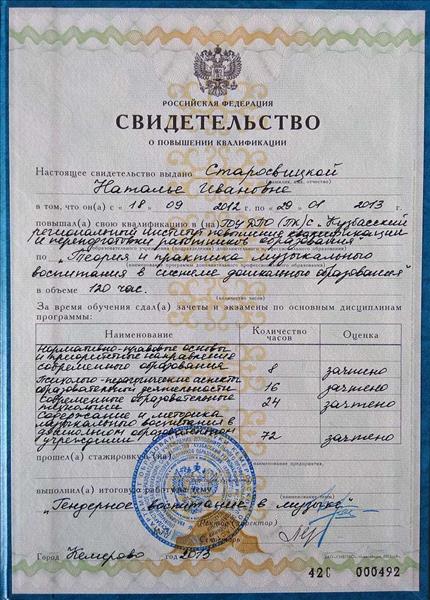 РОССИЙСКАЯ ФЕДЕРАЦИЯ
СВИДЕТЕЛЬСТВО
О ПОВЫШЕНИИ КВАЛИФИКАЦИИ
Настоящее свидетельство выдано Старосвицкой
(фамилия, имя, отчество)
Наталье Ивановне
в том, что он(а) с «18» 09 2012 г. по «29» 01 2013 г.
повышал(а) свою квалификацию в (на) ГОУ ДПО (ПК)С „Кузбасский
региональный институт повышения квалификации
и переподготовки работников образования"
по „Теория и практика музыкального
воспитания в системе дошкольного образования"
в объеме 120 час.
(количество часов)
За время обучения сдал(а) зачеты и экзамены по основным дисциплинам
программы:
Наименование Количество часов Оценка
Нормативно-правовые основы
и приоритетные направления
современного образования 8 зачтено
Психолого-педагогические аспекты
образовательной деятельности 16 зачтено
Современные образовательные
24 зачтено
Содержание и методика
музыкального воспитания в
дошкольном образовательном
учреждении 72 зачтено
прошел(а) стажировку в (на)
(наименование предприятия,
выполнил(а) итоговую работу на тему
(наименование темы)
„Гендерное воспитание в музыке"
Ректор (директор)
Секретарь
Город Кемерово год 2013
42С 000492